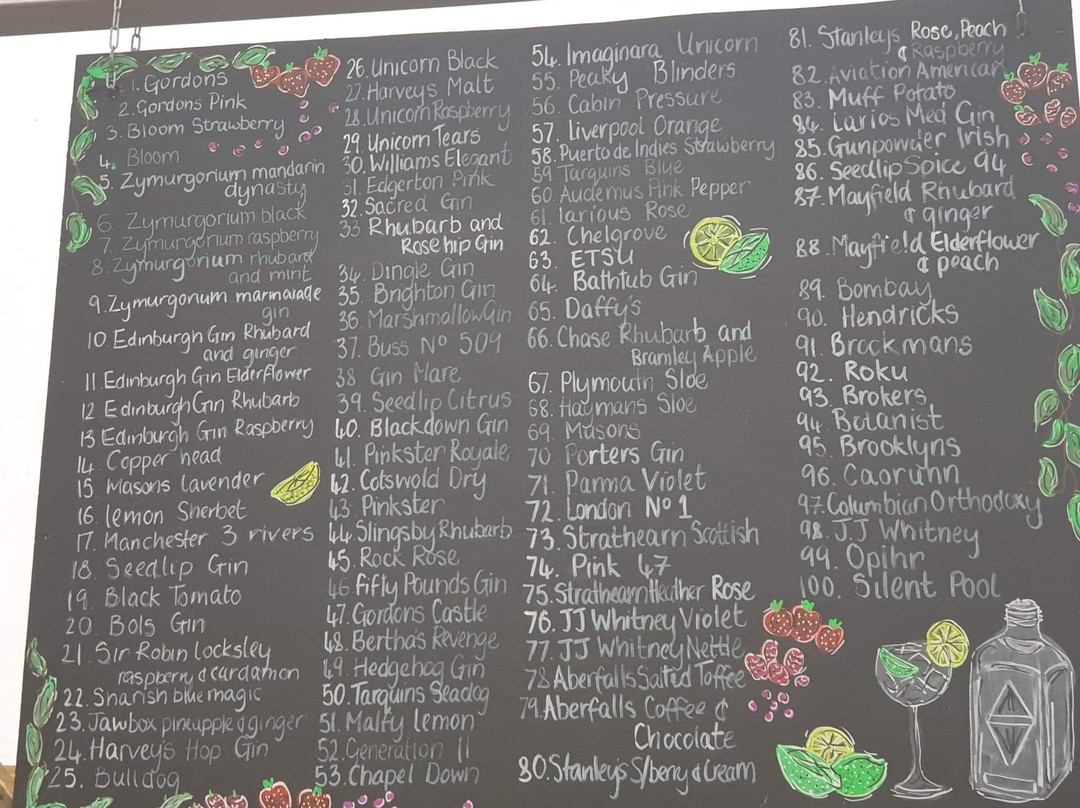 1. Gordons
2. Gordons Pink
3. Bloom Strawberry
4. Bloom
5. Zymurgorium mandarin
dynasty
6. Zymurgorium black
7. Zymurgorium raspberry
8. Zymurgorium rhubarb
and mint
9. Zymurgorium marmalade
gin
10 Edinburgh Gin Rhubard
and ginger
11. Edinburgh Gin Elderflower
12 Edinburgh Gin Rhubarb
13 Edinburgh Gin Raspberry
14. Copper head
15 Masons lavender
16. lemon Sherbet
17. Manchester 3 rivers
18. Seedlip Gin
19. Black Tomato
20. Bols Gin
21. Sir Robin locksley
raspberry & cardamon
22. Sharish blue magic
23. Jawbox pineapple & ginger
24. Harvey's Hop Gin
25. Bulldog
26. Unicorn Black
27. Harveys Malt
28. Unicorn Raspberry
29. Unicorn Tears
30. Williams Elegant
31. Edgerton Pink
32. Sacred Gin
33 Rhubarb and
Rosehip Gin
34. Dingle Gin
35. Brighton Gin
36. Marshmallow Gin
37. Buss Nº 509
38 Gin Mare
39. Seedlip Citrus
40. Blackdown Gin
41. Pinkster Royale
42. Cotswold Dry
43. Pinkster
44. Slingsby Rhubarb
45. Rock Rose
46 fifty Pounds Gin
47. Gordons Castle
48. Bertha's Revenge
49. Hedgehog Gin
50. Tarquins Seadog
51. Malfy lemon
52. Generation 11
53. Chapel Down
54. Imaginara Unicorn
55. Peaky Blinders
56. Cabin Pressure
57. Liverpool Orange
58. Puerto de Indies Strawberry
59 Tarquins Blue
60. Audemus Pink Pepper
61. larious Rose
62. Chelgrove
63. ETSU
64. Bathtub Gin
65. Daffy's
66. Chase Rhubarb and
Bramley Apple
67. Plymouth Sloe
68. Haymans Sloe
69. Masons
70. Porters Gin
71. Parma Violet
72. London Nº 1
73. Strathearn Scottish
74. Pink 47
75. Strathearn Heather Rose
76. JJ Whitney Violet
77. JJ Whitney Nettle
78 Aberfalls Salted Toffee
79. Aberfalls Coffee &
Chocolate
80. Stanleys S/berry & Cream
81. Stanleys Rose, Peach
& Raspberry
82. Aviation American
83. Muff Potato
84. Larios Med Gin
85. Gunpowder Irish
86. Seedlip Spice 94
87. Mayfield Rhubard
& ginger
88. Mayfield Elderflower
& peach
89. Bombay
90. Hendricks
91. Brockmans
92. Roku
93. Brokers
94. Botanist
95. Brooklyns
96. Caorunn
97. Columbian Orthodoxy
98. JJ Whitney
99. Opihr
100. Silent Pool